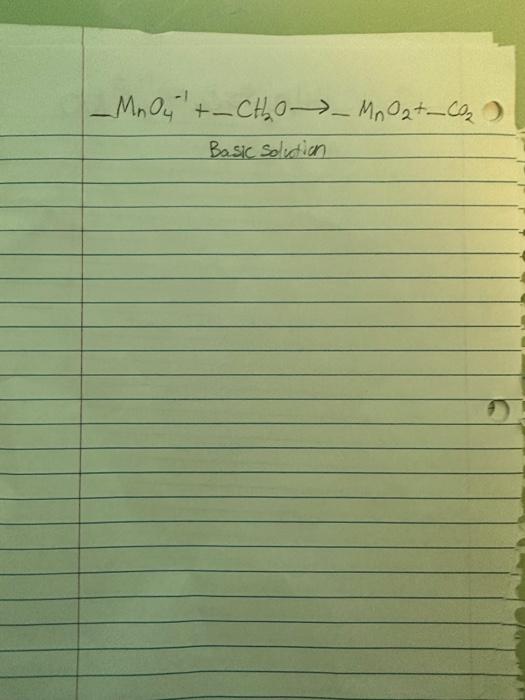 _MnO₄⁻¹ + _CH₂O → _ MnO₂ + _CO₂
Basic solution